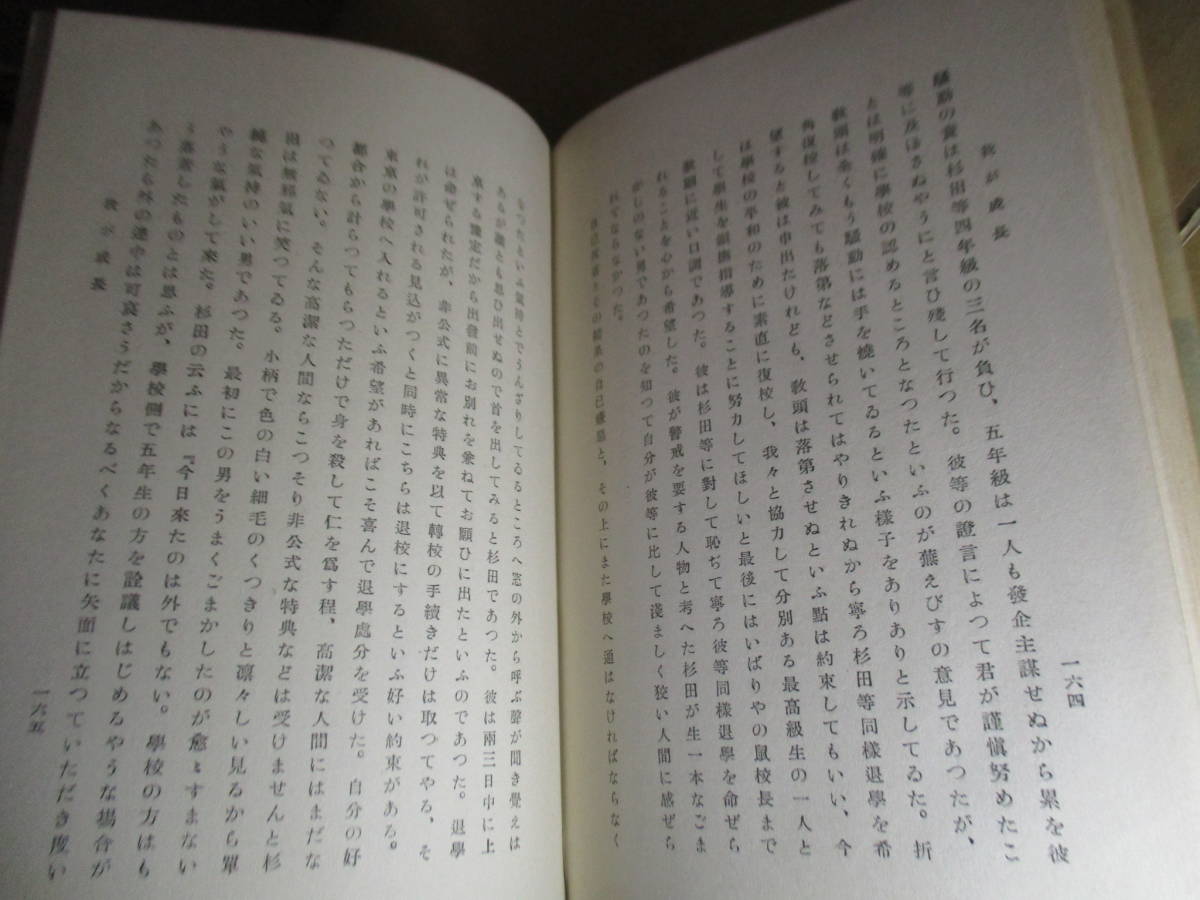 我が成長
一六四
騷動の責は杉田等四年級の三名が負ひ、五年級は一人も發企主謀せぬから累を彼
等に及ぼさぬやうにと言ひ殘して行つた。彼等の證言によつて君が謹愼努めたこ
とは明確に學校の認めるところとなつたといふのが蕪えびすの意見であつたが、
敎頭は全くもう騷動には手を燒いてゐるといふ樣子をありありと示してゐた。折
角復校してみても落第などさせられてはやりきれぬから寧ろ杉田等同樣退學を希
望すると彼は申出たけれども、敎頭は落第させぬといふ點は約束してもいい、今
は學校の平和のために素直に復校し、我々と協力して分別ある最高級生の一人と
して級生を指導することに努力してほしいと最後にはいばりやの鼠校長まで
歎願に近い口調であつた。彼は杉田等に對して恥ぢて寧ろ彼等同樣退學を命ぜら
れることを心から希望した。彼が警戒を要する人物と考へた杉田が生一本なごま
かしのない男であつたのを知つて自分が彼等に比して淺ましく狡い人間に感ぜら
れてならなかつた。
その結果の自己嫌惡と、その上にまた學校へ通はなければならなく
なつたといふ氣持とでうんざりしてゐるところへ窓の外から呼ぶ聲が聞き覺えは
あるが誰とも思ひ出せぬので首を出してみると杉田であつた。彼は兩三日中に上
京する豫定だから出發前にお別れを兼ねてお願ひに出たといふのであつた。退學
は命ぜられたが、非公式に異常な特典を以て轉校の手續きだけは取つてやる、そ
れが許可される見込がつくと同時にこちらは退校にするといふ好い約束がある。
東京の學校へ入れるといふ希望があればこそ喜んで退學處分を受けた。自分の好
都合から計らつてもらつただけで身を殺して仁を爲す程、高潔な人間にはまだな
つてゐない。そんな高潔な人間ならこつそり非公式な特典などは受けませんと杉
田は無邪氣に笑つてゐる。小柄で色の白い細毛のくつきりと凛々しい見るから單
純な氣持のいい男であつた。最初にこの男をうまくごまかしたのが愈〻すまない
やうな氣がして來た。杉田の云ふには『今日來たのは外でもない。學校の方はも
う落着したものとは思ふが、學校側で五年生の方を詮議しはじめるやうな場合が
あつたら外の連中は可哀さうだからなるべくあなたに矢面に立つていただき度い
我が成長
一六五